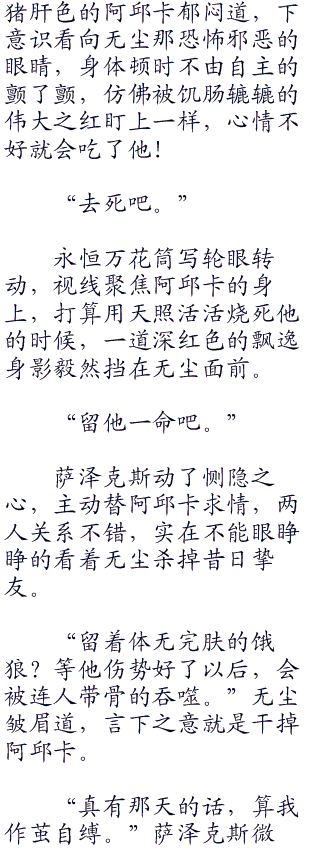 猪肝色的阿邱卡郁闷道，下
意识看向无尘那恐怖邪恶的
眼睛，身体顿时不由自主的
颤了颤，仿佛被饥肠辘辘的
伟大之红盯上一样，心情不
好就会吃了他！
“去死吧。”
永恒万花筒写轮眼转
动，视线聚焦阿邱卡的身
上，打算用天照活活烧死他
的时候，一道深红色的飘逸
身影毅然挡在无尘面前。
“留他一命吧。”
萨泽克斯动了恻隐之
心，主动替阿邱卡求情，两
人关系不错，实在不能眼睁
睁的看着无尘杀掉昔日挚
友。
“留着体无完肤的饿
狼？等他伤势好了以后，会
被连人带骨的吞噬。”无尘
皱眉道，言下之意就是干掉
阿邱卡。
“真有那天的话，算我
作茧自缚。”萨泽克斯微